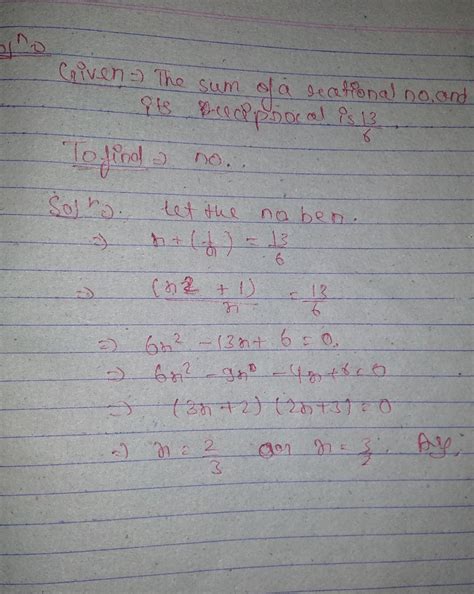 Sol no
Given ⇒ The sum of a rational no. and
its reciprocal is 13/6
To find ⇒ no..
Sol no. let the no be n.
⇒ n + (1/n) = 13/6
⇒ (n2 + 1)/n = 13/6
⇒ 6n² - 13n + 6 = 0.
⇒ 6n² - 9n - 4n + 6 = 0
⇒ (3n + 2) (2n + 3) = 0
⇒ n = 2/3 or n = 3/2. Ay.